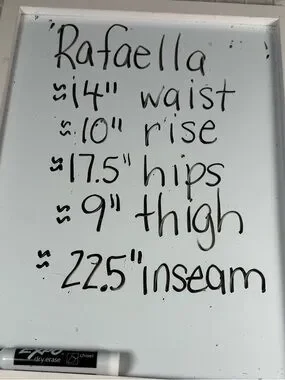 Rafaella
≈14" waist
≈10" rise
≈17.5" hips
≈9" thigh
≈22.5" inseam
EXPO
dry erase
chisel